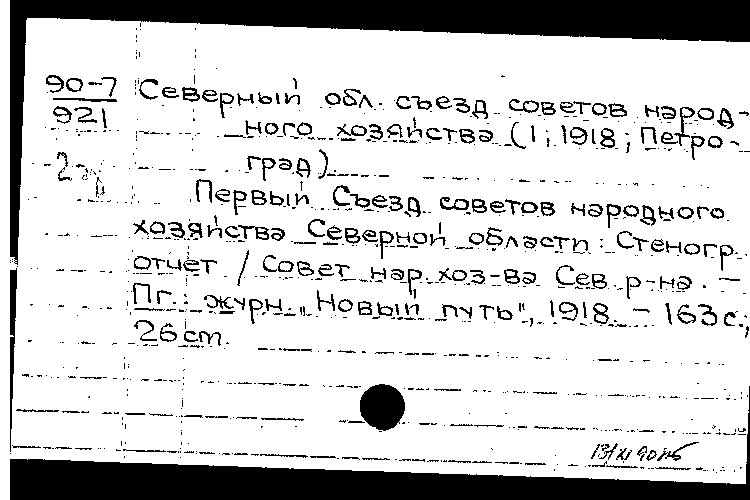 90-7 Северный обл. съезд советов народ-
921 ного хозяйства (1; 1918; Петро-
2 град)
Первый Съезд советов народного
хозяйства Северной области: Стеногр.
отчет / Совет нар. хоз-ва Сев. р-на. –
Пг.: журн. „Новый путь", 1918. – 163 с.;
26 cm.